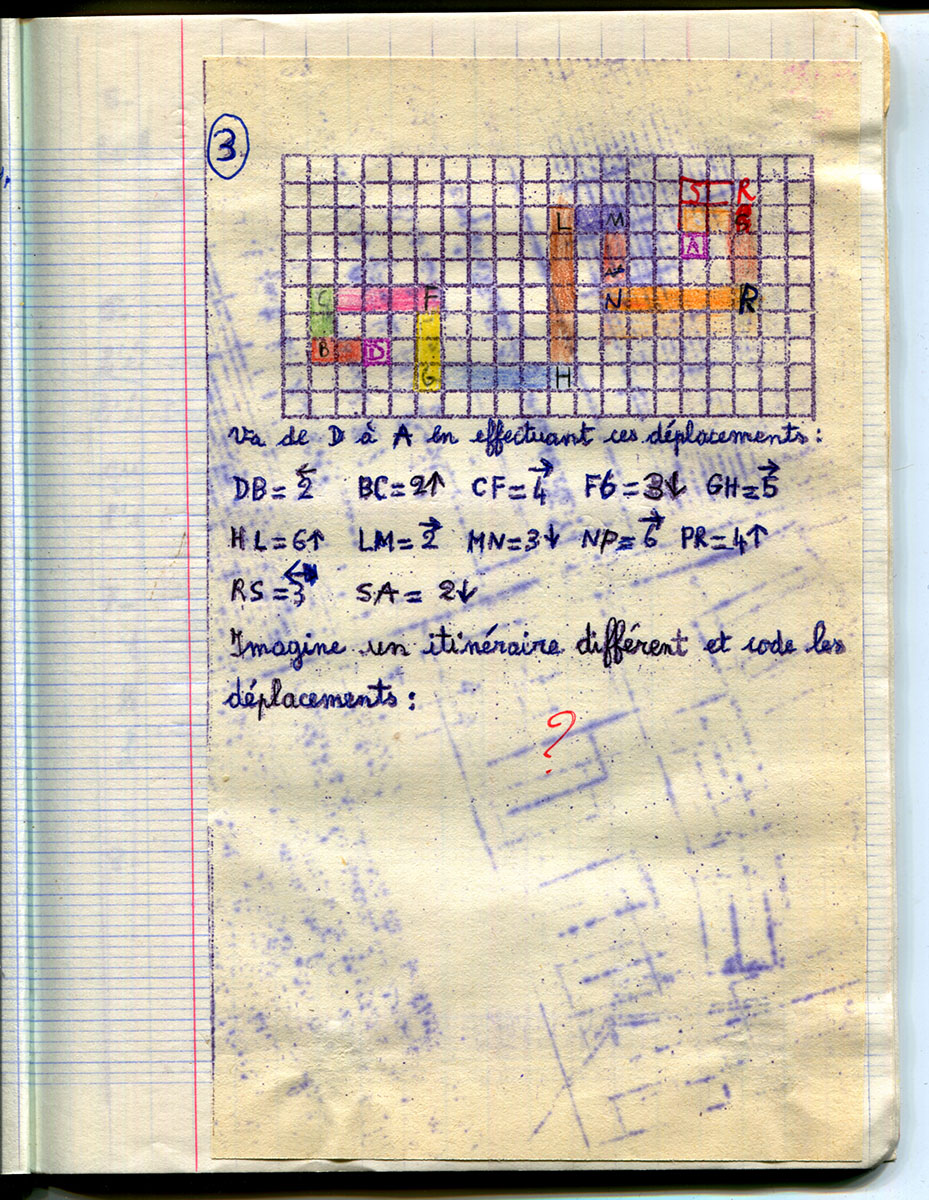 3
S R
L M S
A
C F N R
B D
G H
Va de D à A en effectuant ces déplacements :
DB = ←2 BC = 2↑ CF = →4 FG = 3↓ GH = →5
HL = 6↑ LM = →2 MN = 3↓ NP = →6 PR = 4↑
RS = ←3 SA = 2↓
Imagine un itinéraire différent et code les
déplacements :
?